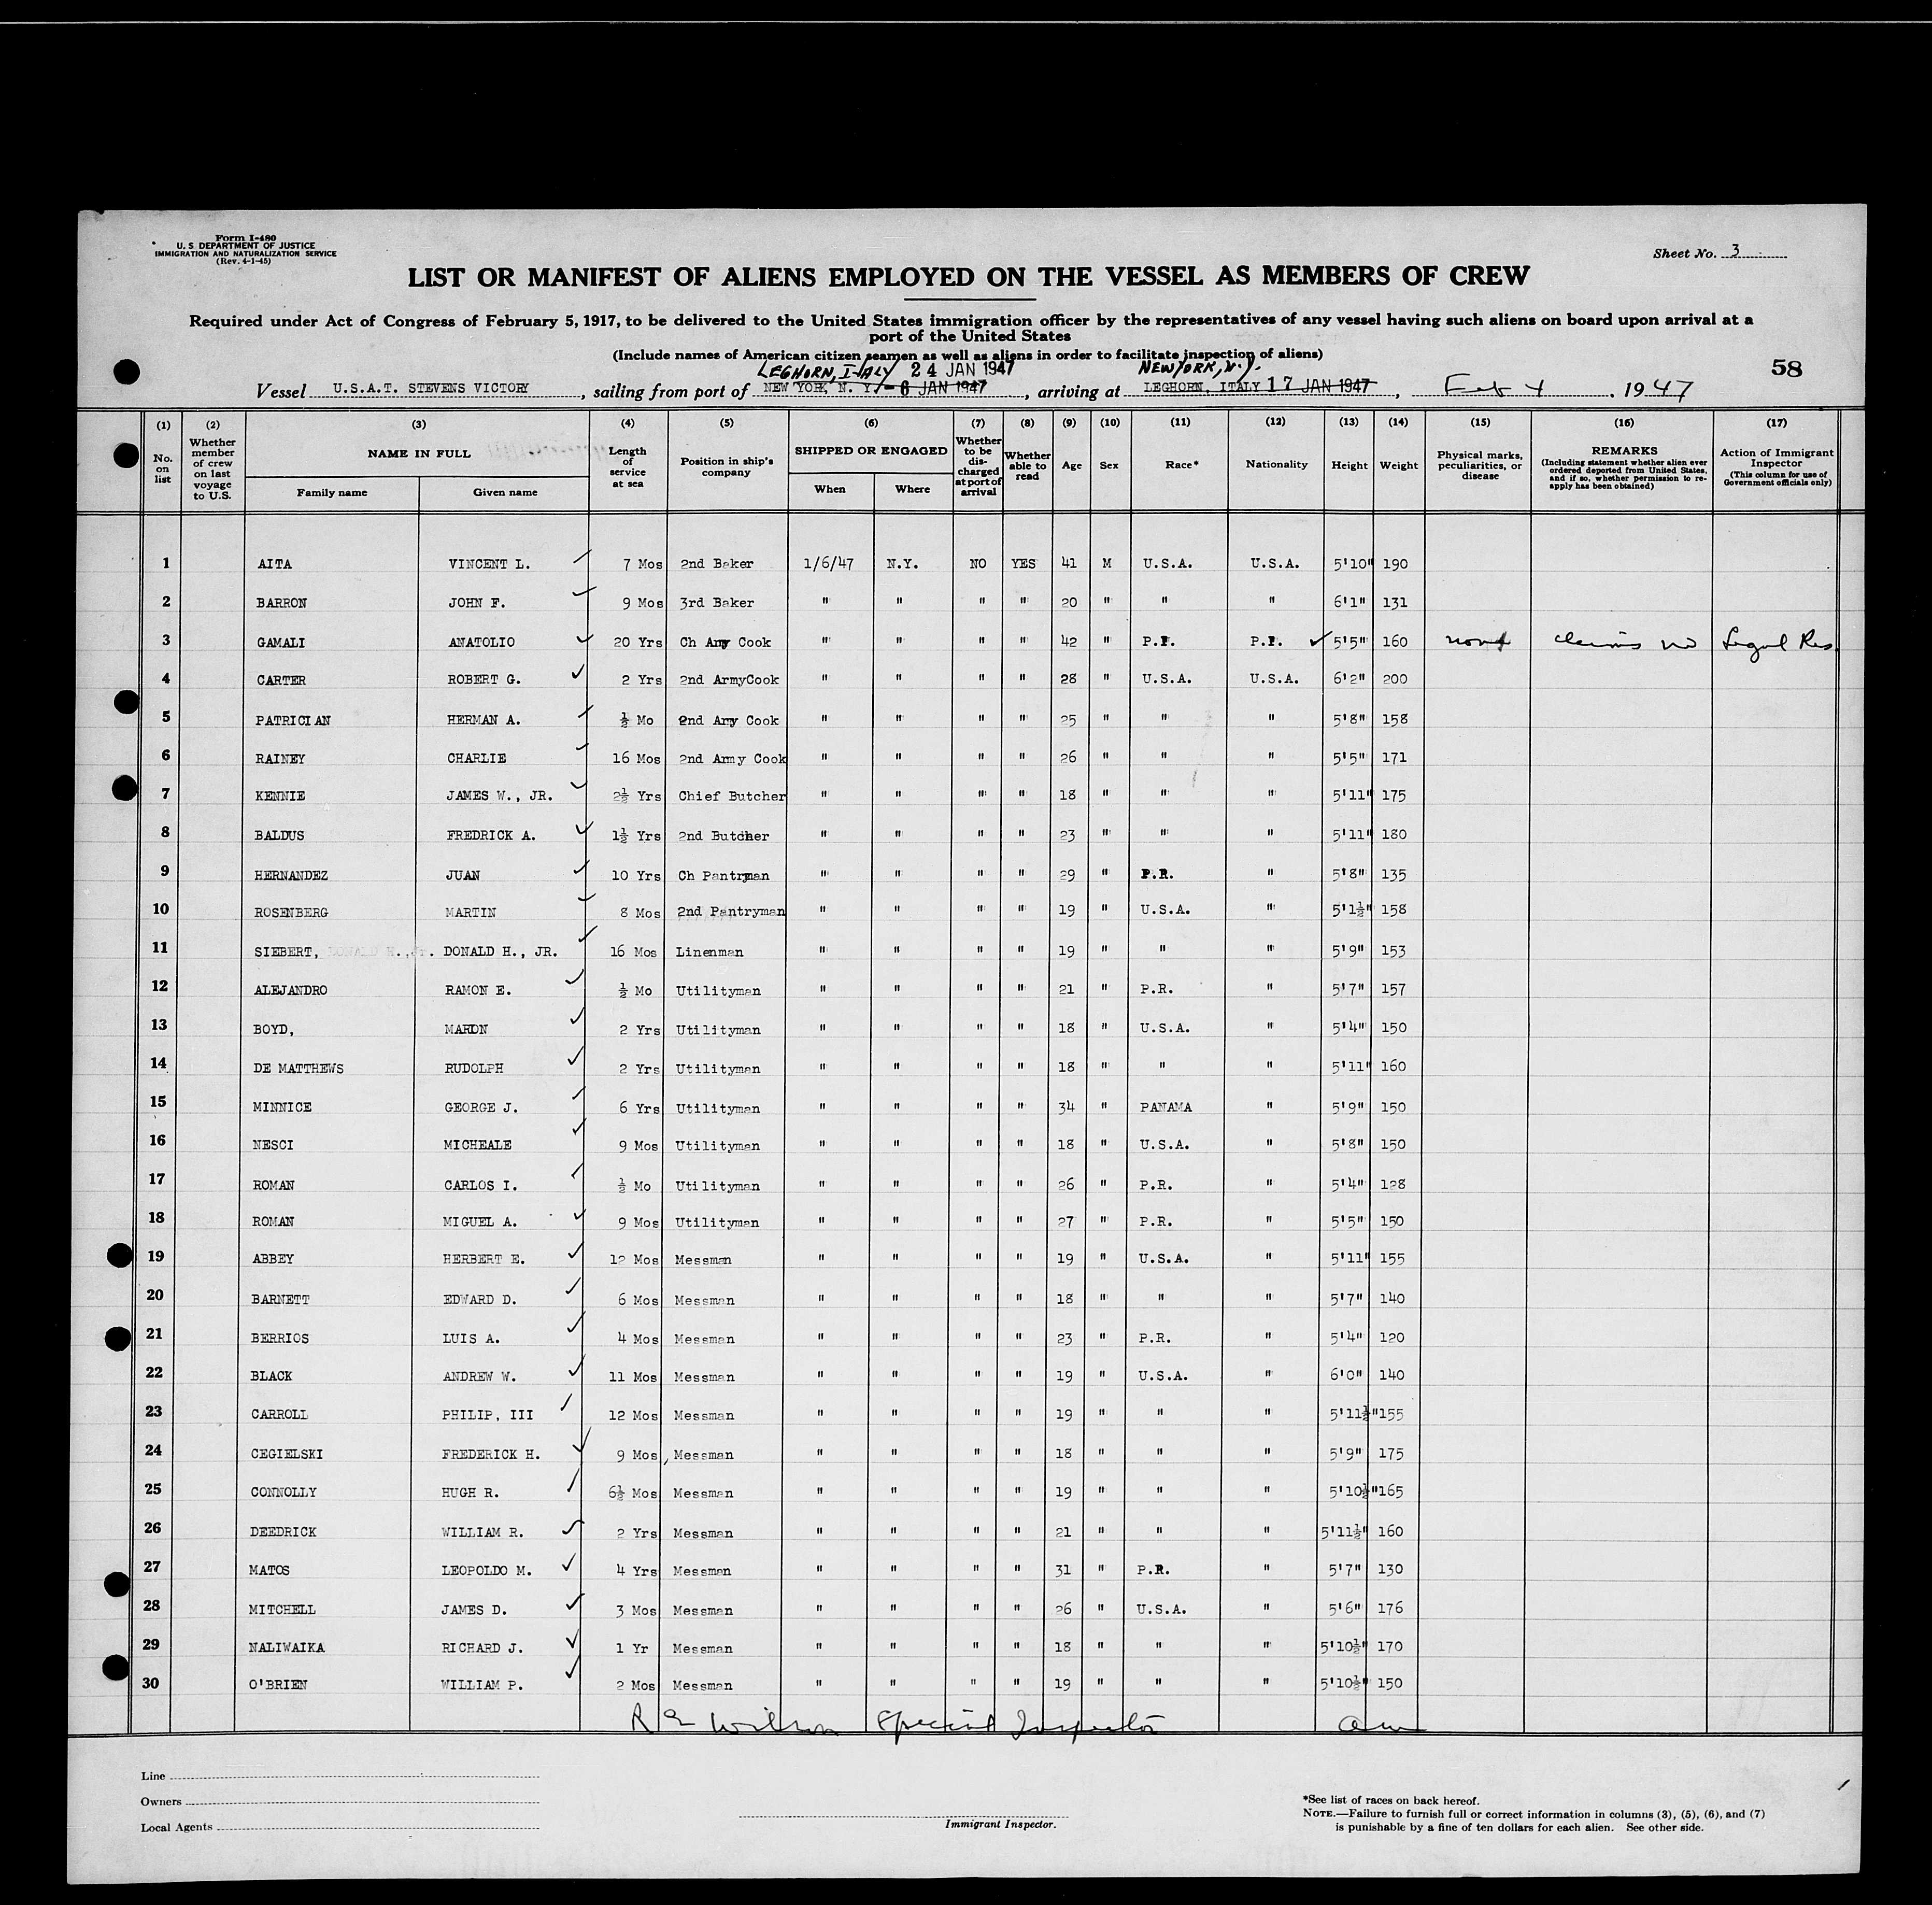 Form I-480
U. S. DEPARTMENT OF JUSTICE
IMMIGRATION AND NATURALIZATION SERVICE
(Rev. 4-1-45)
Sheet No. 3
LIST OR MANIFEST OF ALIENS EMPLOYED ON THE VESSEL AS MEMBERS OF CREW
Required under Act of Congress of February 5, 1917, to be delivered to the United States immigration officer by the representatives of any vessel having such aliens on board upon arrival at a
port of the United States
(Include names of American citizen seamen as well as aliens in order to facilitate inspection of aliens)
58
LEGHORN, ITALY 24 JAN 1947 NEW YORK, N.Y.
Vessel U.S.A.T. STEVENS VICTORY, sailing from port of NEW YORK, N. Y. - 6 JAN 1947, arriving at LEGHORN, ITALY 17 JAN 1947, Feb 4, 1947
(1) No. on list (2) Whether member of crew on last voyage to U.S. (3) NAME IN FULL Family name Given name (4) Length of service at sea (5) Position in ship's company (6) SHIPPED OR ENGAGED When Where (7) Whether to be discharged at port of arrival (8) Whether able to read (9) Age (10) Sex (11) Race* (12) Nationality (13) Height (14) Weight (15) Physical marks, peculiarities, or disease (16) REMARKS (Including statement whether alien ever ordered deported from United States, and if so, whether permission to re-apply has been obtained) (17) Action of Immigrant Inspector (This column for use of Government officials only)
1 AITA VINCENT L. 7 Mos 2nd Baker 1/6/47 N.Y. NO YES 41 M U.S.A. U.S.A. 5'10" 190
2 BARRON JOHN F. 9 Mos 3rd Baker " " " " 20 " " " 6'1" 131
3 GAMALI ANATOLIO 20 Yrs Ch Amy Cook " " " " 42 " P.I. P.I. 5'5" 160 none claims no Legal Res
4 CARTER ROBERT G. 2 Yrs 2nd ArmyCook " " " " 28 " U.S.A. U.S.A. 6'2" 200
5 PATRICIAN HERMAN A. ½ Mo 2nd Amy Cook " " " " 25 " " " 5'8" 158
6 RAINEY CHARLIE 16 Mos 2nd Army Cook " " " " 26 " " " 5'5" 171
7 KENNIE JAMES W., JR. 2½ Yrs Chief Butcher " " " " 18 " " " 5'11" 175
8 BALDUS FREDRICK A. 1½ Yrs 2nd Butcher " " " " 23 " " " 5'11" 180
9 HERNANDEZ JUAN 10 Yrs Ch Pantryman " " " " 29 " P.R. " 5'8" 135
10 ROSENBERG MARTIN 8 Mos 2nd Pantryman " " " " 19 " U.S.A. " 5'1½" 158
11 SIEBERT, DONALD H., JR. 16 Mos Linenman " " " " 19 " " " 5'9" 153
12 ALEJANDRO RAMON E. ½ Mo Utilityman " " " " 21 " P.R. " 5'7" 157
13 BOYD, MARON 2 Yrs Utilityman " " " " 18 " U.S.A. " 5'4" 150
14 DE MATTHEWS RUDOLPH 2 Yrs Utilityman " " " " 18 " " " 5'11" 160
15 MINNICE GEORGE J. 6 Yrs Utilityman " " " " 34 " PANAMA " 5'9" 150
16 NESCI MICHEALE 9 Mos Utilityman " " " " 18 " U.S.A. " 5'8" 150
17 ROMAN CARLOS I. ½ Mo Utilityman " " " " 26 " P.R. " 5'4" 128
18 ROMAN MIGUEL A. 9 Mos Utilityman " " " " 27 " P.R. " 5'5" 150
19 ABBEY HERBERT E. 12 Mos Messman " " " " 19 " U.S.A. " 5'11" 155
20 BARNETT EDWARD D. 6 Mos Messman " " " " 18 " " " 5'7" 140
21 BERRIOS LUIS A. 4 Mos Messman " " " " 23 " P.R. " 5'4" 120
22 BLACK ANDREW W. 11 Mos Messman " " " " 19 " U.S.A. " 6'0" 140
23 CARROLL PHILIP, III 12 Mos Messman " " " " 19 " " " 5'11½" 155
24 CEGIELSKI FREDERICK H. 9 Mos Messman " " " " 18 " " " 5'9" 175
25 CONNOLLY HUGH R. 6½ Mos Messman " " " " 19 " " " 5'10½" 165
26 DEEDRICK WILLIAM R. 2 Yrs Messman " " " " 21 " " " 5'11½" 160
27 MATOS LEOPOLDO M. 4 Yrs Messman " " " " 31 " P.R. " 5'7" 130
28 MITCHELL JAMES D. 3 Mos Messman " " " " 26 " U.S.A. " 5'6" 176
29 NALIWAIKA RICHARD J. 1 Yr Messman " " " " 18 " " " 5'10½" 170
30 O'BRIEN WILLIAM P. 2 Mos Messman " " " " 19 " " " 5'10½" 150
R E Wilson Special Inspector
Line
Owners
Local Agents
Immigrant Inspector.
*See list of races on back hereof.
NOTE.—Failure to furnish full or correct information in columns (3), (5), (6), and (7)
is punishable by a fine of ten dollars for each alien. See other side.